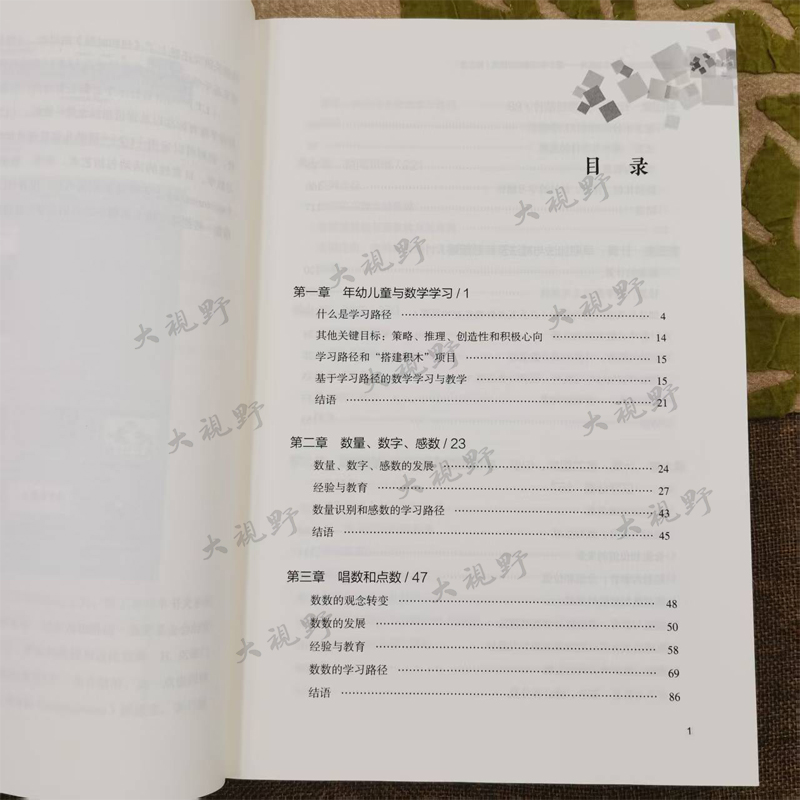 目 录
第一章 年幼儿童与数学学习 / 1
什么是学习路径 4
其他关键目标：策略、推理、创造性和积极心向 14
学习路径和“搭建积木”项目 15
基于学习路径的数学学习与教学 15
结语 21
第二章 数量、数字、感数 / 23
数量、数字、感数的发展 24
经验与教育 27
数量识别和感数的学习路径 43
结语 45
第三章 唱数和点数 / 47
数数的观念转变 48
数数的发展 50
经验与教育 58
数数的学习路径 69
结语 86
1
大视野
大视野
大视野
大视野
大视野
大视野
大视野
大视野
大视野
大视野